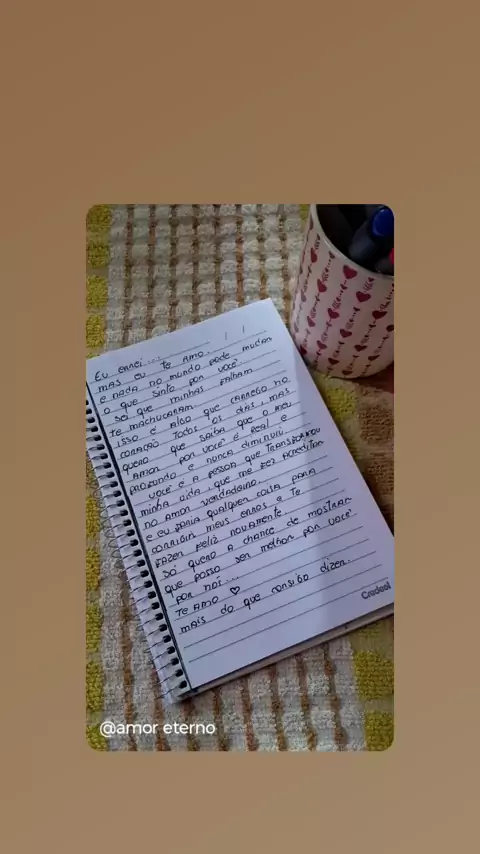 Eu errei...
mas eu te amo.
e nada no mundo pode mudar
o que sinto por você.
sei que minhas falham
te machucaram
isso é algo que carrego no
coração todos os dias, mas
quero que saiba que o meu
amor por você é real e
profundo e nunca diminuiu
você é a pessoa que transformou
minha vida, que me fez acreditar
no amor verdadeiro.
e eu faria qualquer coisa para
corrigir meus erros e te
fazer feliz novamente.
só quero a chance de mostrar
que posso ser melhor por você
por nói...
te amo ♡
mais do que consigo dizer.
Credeal
@amor eterno